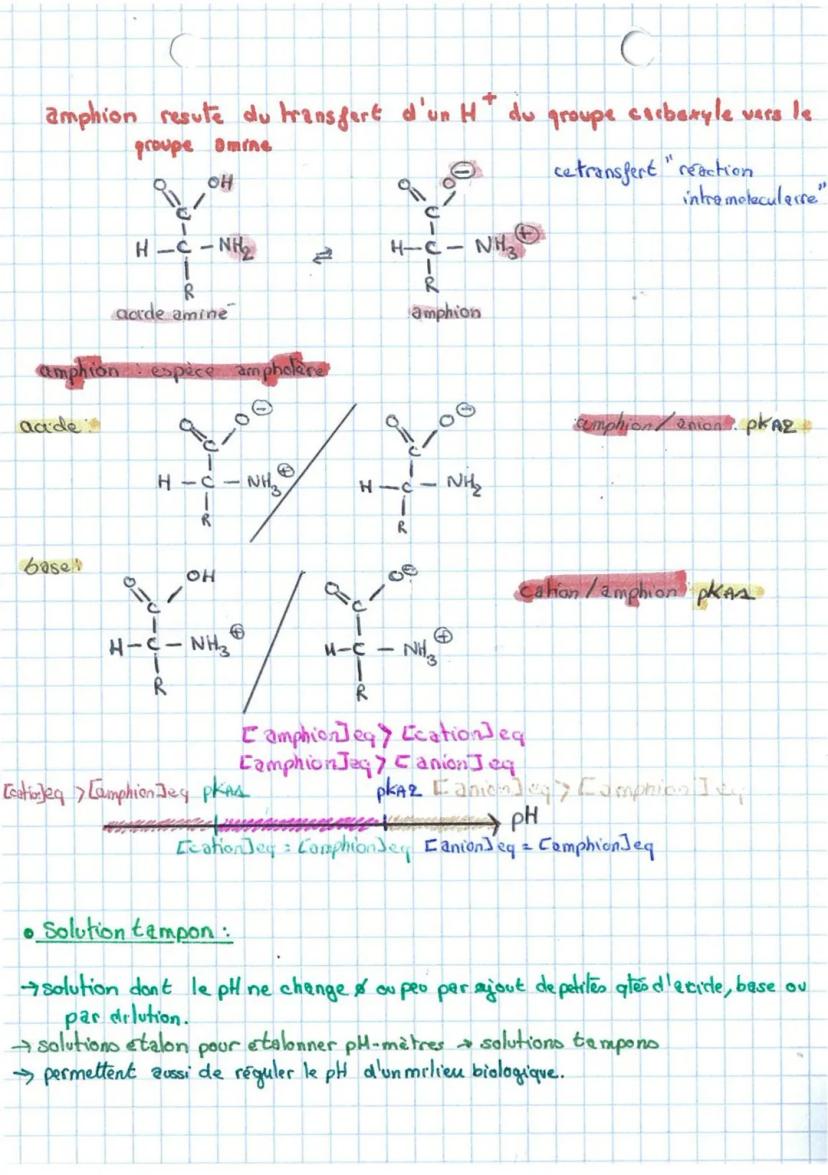 amphion resute du transfert d'un H⁺ du groupe carboxyle vers le
groupe amine
ce transfert "réaction
intramoleculaire"
O OH
C
H - C - NH₂
R
acide aminé
⇌
O O⊖
C
H - C - NH₃⊕
R
amphion
amphion : espèce ampholère
acide :
O O⊖
C
H - C - NH₃⊕
R
/
O O⊖
C
H - C - NH₂
R
amphion / anion : pKA2
base :
O OH
C
H - C - NH₃⊕
R
/
O O⊖
C
H - C - NH₃⊕
R
cation / amphion pKA1
[amphion]eq > [cation]eq
[amphion]eq > [anion]eq
[cation]eq > [amphion]eq pKA1 pKA2 [anion]eq > [amphion]eq
pH
[cation]eq = [amphion]eq [anion]eq = [amphion]eq
• Solution tampon :
→ solution dont le pH ne change ou peu par ajout de petites qtés d'acide, base ou
par dilution.
→ solutions etalon pour etalonner pH-mètres → solutions tampons
→ permettent aussi de réguler le pH d'un milieu biologique.